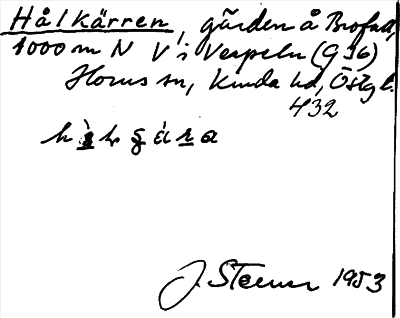 Hålkärren, gården å Brofall,
1000 m N V i Verpeln (G36)
Horns sn, Kinda hd, Östgl.
432
J. Steens 1953